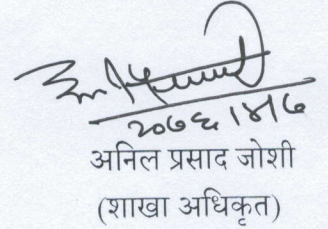 २०७६।४।७
अनिल प्रसाद जोशी
(शाखा अधिकृत)